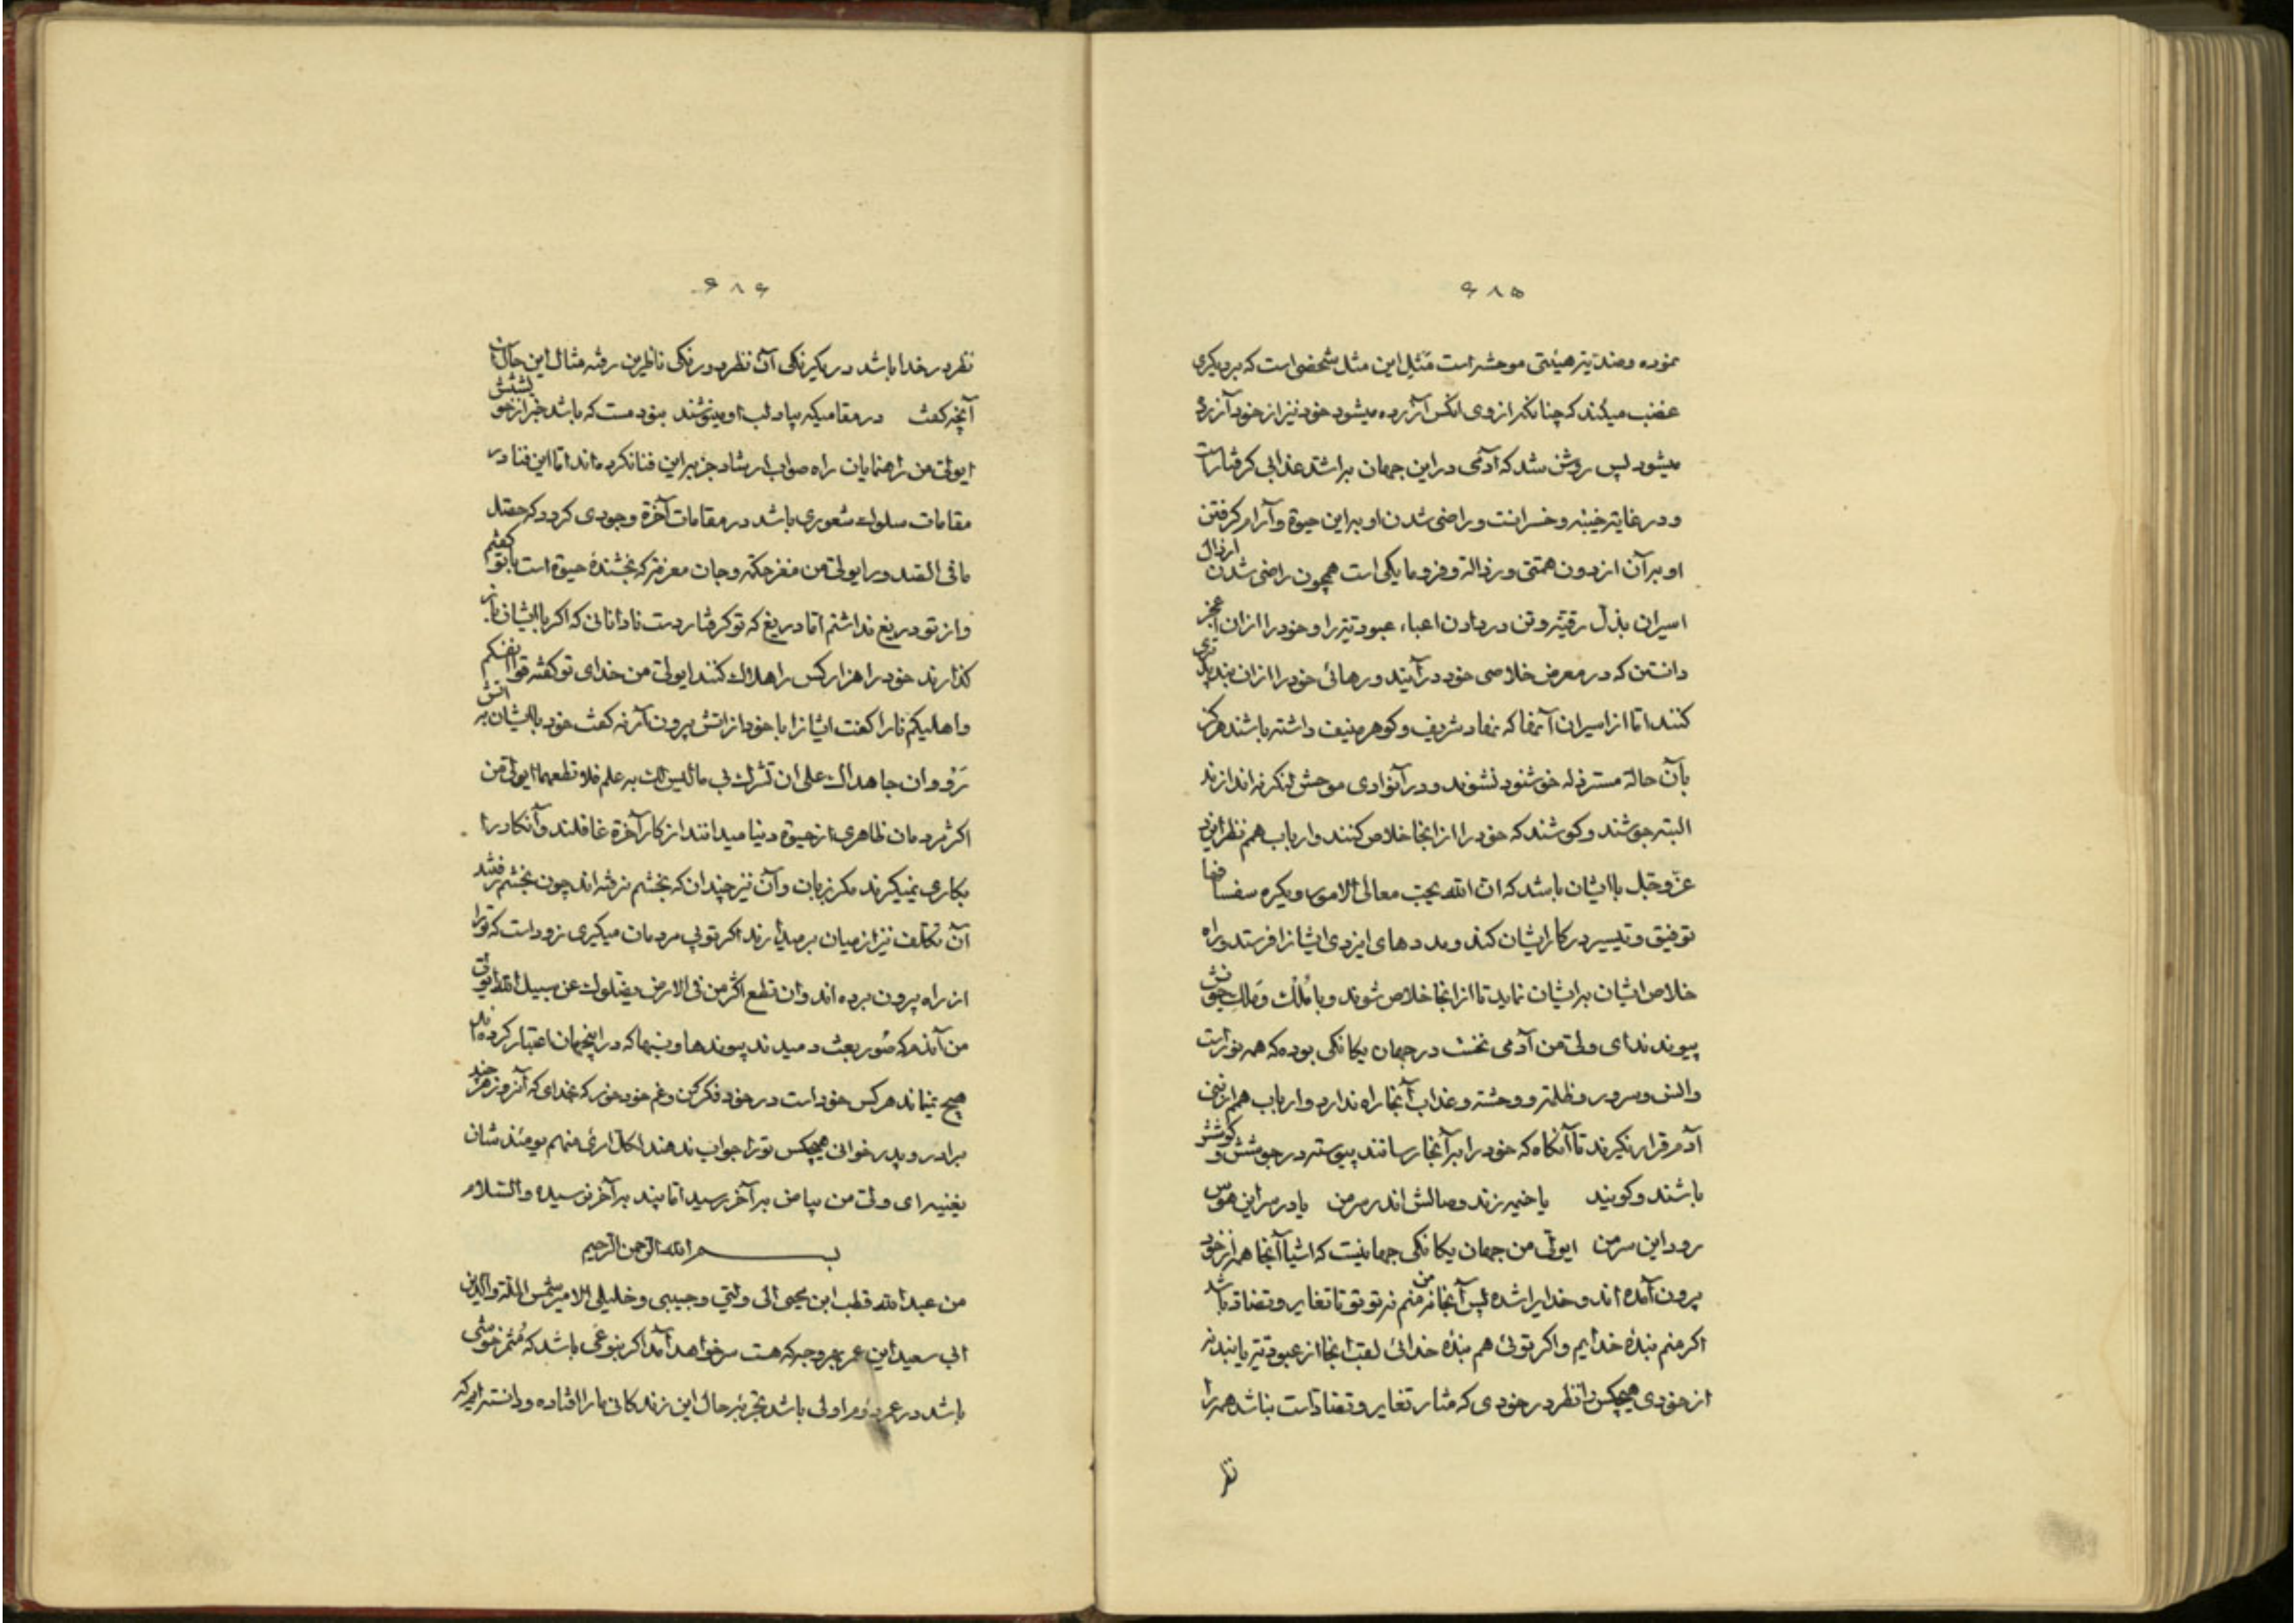 ۶۸۵
نموده و ضدیته هیئتی موحشه است مَثَلِ این مثل شخصی است که بر دیگری
غضب میکند که چنانکه از وی انکس آزرده میشود خود نیز از خود آزرده
میشود پس روشن شد که آدمی در این جهان براشد عذابی کرفتار است
و در غایة خیبه و خسرانست و راضی شدن او براین حیوة و آرام کرفتن
او بر آن از دون همتی و رذالة و فرومایکی است همچون راضی شدن ارذال
اسیران بذل رقیّة و تن در دادن اعباء عبودیّة را و خود را از ان
دانستن که در معرض خلاصی خود در آیند و رهائی خود را ازان بند
کنند اما از اسیران آنها که نهاد شریف و کوهر منیف داشته باشند هرکز
بآن حالة مسترذله خوشنود نشوند و در آنوادی موحش لنکر نه اندازند
البته جوشند و کوشند که خود را از انجا خلاص کنند و ارباب همم نظر ایزد
عزّ و جل باایشان باشد که ان الله یحب معالی الامور و یکره سفسافها
توفیق و تیسیر در کار ایشان کند و مددهای ایزدی ایشانرا فرستد و راه
خلاص ایشان برایشان نماید تا از انجا خلاص شوند و با مُلک و مَلِک
پیوندند ای ولی من آدمی نخست در جهان یکانکی بوده که همه نور است
و انس و سرور و ظلمة و وحشة و عذاب آنجا راه ندارد و ارباب همم از بنی
آدم قرار نکیرند تا آنکاه که خود را برآنجا رسانند پیوسته در جوشش و کوشش
باشند و کویند یا خیمه زند وصالش اندر سر من یا در سر این هوس
رود این سر من ایولی من جهان یکانکی جهانیست که اشیا آنجا همه از خود
برون آمده اند و خدایرا شده پس آنجا نه من منم نه تو تو تا تغایر و تضاد باشد
اکر منم بندهٔ خدایم و اکر توئی هم بندهٔ خدائی لقب انجا از عبودیّة یابند نه
از خودی هیچکس را نظر در خودی که مثار تغایر و تضاد است نباشد همه را
نظر
۶۸۶
نظر در خدا باشد در یکرنکی آن نظر دورنکی ناظرین رفته مثال این حال آن
آنچه کفت در مقامیکه بیاد لب او مینوشند نبود مست که باشد خبر از خویشتنش
ایولی من راهنمایان راه صواب ارشاد جز براین فنا نکرده اند اما این فنا در
مقامات سلوک شعوری باشد در مقامات آخرة وجودی کردد که حصّل
ما فی الصدور ایولی من مغز حکمة و جان معرفة که بخشندهٔ حیوة است باتو کفتم
و از تو دریغ نداشتم اما دریغ که تو کرفتار دست نادانانی که اکر باایشان
کذارند خود را هزار کس را هلاک کنند ایولی من خدای تو کفته قوا انفسکم
و اهلیکم نارا کفت ایشانرا با خود از اتش برون آر نه کفت خود باایشان به اتش
رَوْ و ان جاهداک علی ان تشرک بی ما لیس لک به علم فلا تطعهما ایولی من
اکثر مردمان ظاهری از حیوة دنیا میدانند از کار آخرة غافلند و آنکار را
بکاری نمیکیرند مکر بزبان و آن نیز چندان که بخشم نرفته اند چون بخشم رفتند
آن تکلف نیز از میان بر میدارند اکر تو پی مردمان میکیری زود است که ترا
از راه برون برده اند و ان تطع اکثر من فی الارض یضلوک عن سبیل الله ایولی
من آندم که صُور بعث دمیدند پیوندها و نسبها که در اینجهان اعتبار کرده اند
هیچ نماند هر کس خود است در خود فکر کن و غم خود خور که بخدای که آنروز هر چند
برادر و پدر خوانی هیچکس تو را جواب ندهند لکل امرئ منهم یومئذ شان
یغنیه ای ولی من بیاض برآخر رسید اما پند برآخر نرسیده و السّلام
بسم الله الرحمن الرحیم
من عبد الله قطب ابن یحیی الی ولیّی و حبیبی و خلیلی الامیر شمس الملة والدّین
ابی سعید این عمر بهر وجه که هست سر خواهد آمد اکر بنوعی باشد که مُثمر خوشی
باشد در عمر دوم اولی باشد تجربه حال این زندکانی ما را افتاده و دانسته ایم که